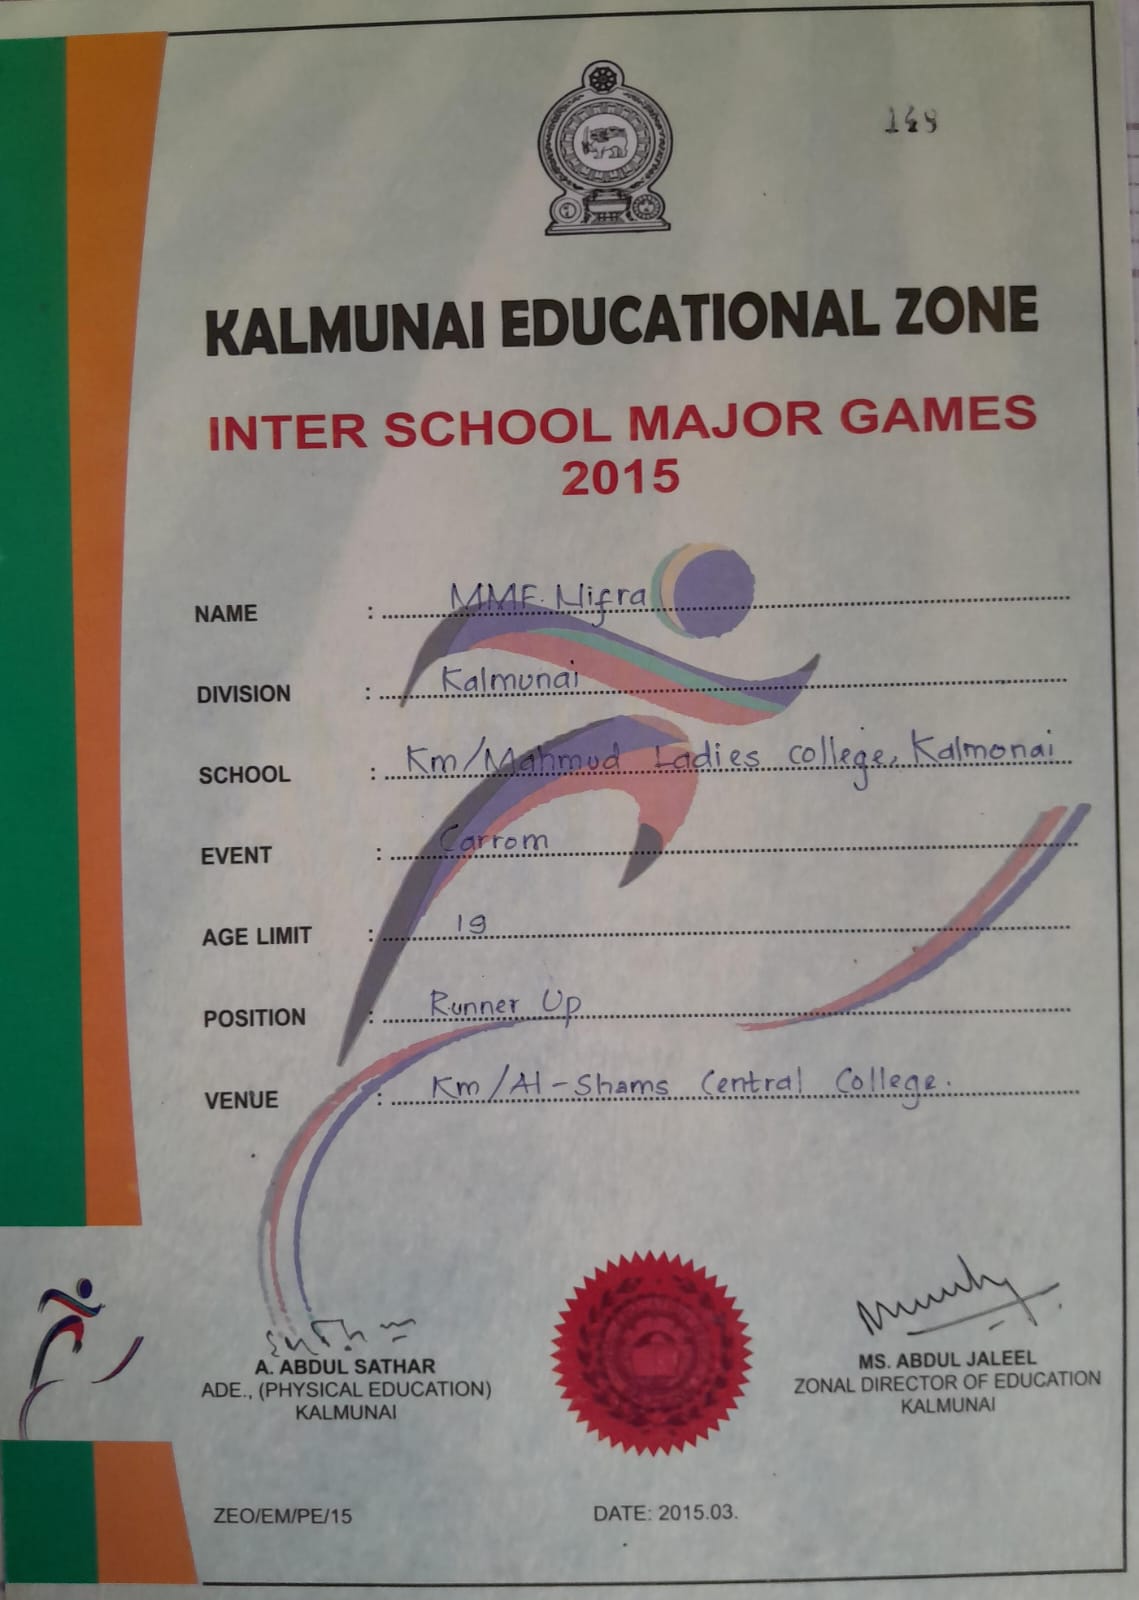 148
KALMUNAI EDUCATIONAL ZONE
INTER SCHOOL MAJOR GAMES
2015
NAME : MMF. Nifra
DIVISION : Kalmunai
SCHOOL : Km/Mahmud Ladies college, Kalmonai
EVENT : Carrom
AGE LIMIT : 19
POSITION : Runner Up
VENUE : Km/Al-Shams Central College.
A. ABDUL SATHAR
ADE., (PHYSICAL EDUCATION)
KALMUNAI
MS. ABDUL JALEEL
ZONAL DIRECTOR OF EDUCATION
KALMUNAI
ZEO/EM/PE/15
DATE: 2015.03.